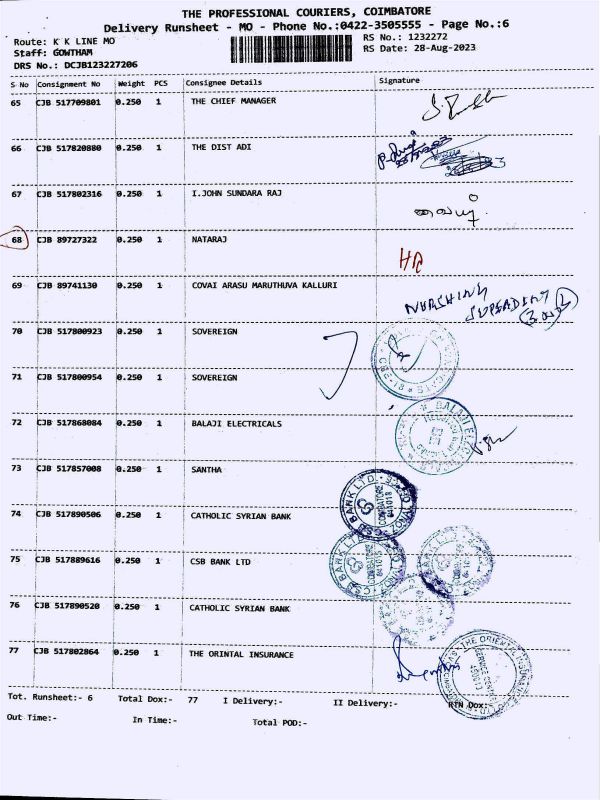 THE PROFESSIONAL COURIERS, COIMBATORE
Delivery Runsheet - MO - Phone No.:0422-3505555 - Page No.:6
Route: K K LINE MO
RS No.: 1232272
Staff: GOWTHAM
RS Date: 28-Aug-2023
DRS No.: DCJB123227206
S No Consignment No Weight PCS Consignee Details Signature
65 CJB 517709801 0.250 1 THE CHIEF MANAGER
66 CJB 517820880 0.250 1 THE DIST ADI
67 CJB 517802316 0.250 1 I.JOHN SUNDARA RAJ
68 CJB 89727322 0.250 1 NATARAJ
69 CJB 89741130 0.250 1 COVAI ARASU MARUTHUVA KALLURI
70 CJB 517800923 0.250 1 SOVEREIGN
71 CJB 517800954 0.250 1 SOVEREIGN
72 CJB 517868084 0.250 1 BALAJI ELECTRICALS
73 CJB 517857008 0.250 1 SANTHA
74 CJB 517890506 0.250 1 CATHOLIC SYRIAN BANK
CSB BANK LTD. COIMBATORE 641018
75 CJB 517889616 0.250 1 CSB BANK LTD
76 CJB 517890520 0.250 1 CATHOLIC SYRIAN BANK
77 CJB 517802864 0.250 1 THE ORINTAL INSURANCE
Tot. Runsheet:- 6 Total Dox:- 77 I Delivery:- II Delivery:- RTN Dox:-
Out Time:- In Time:- Total POD:-